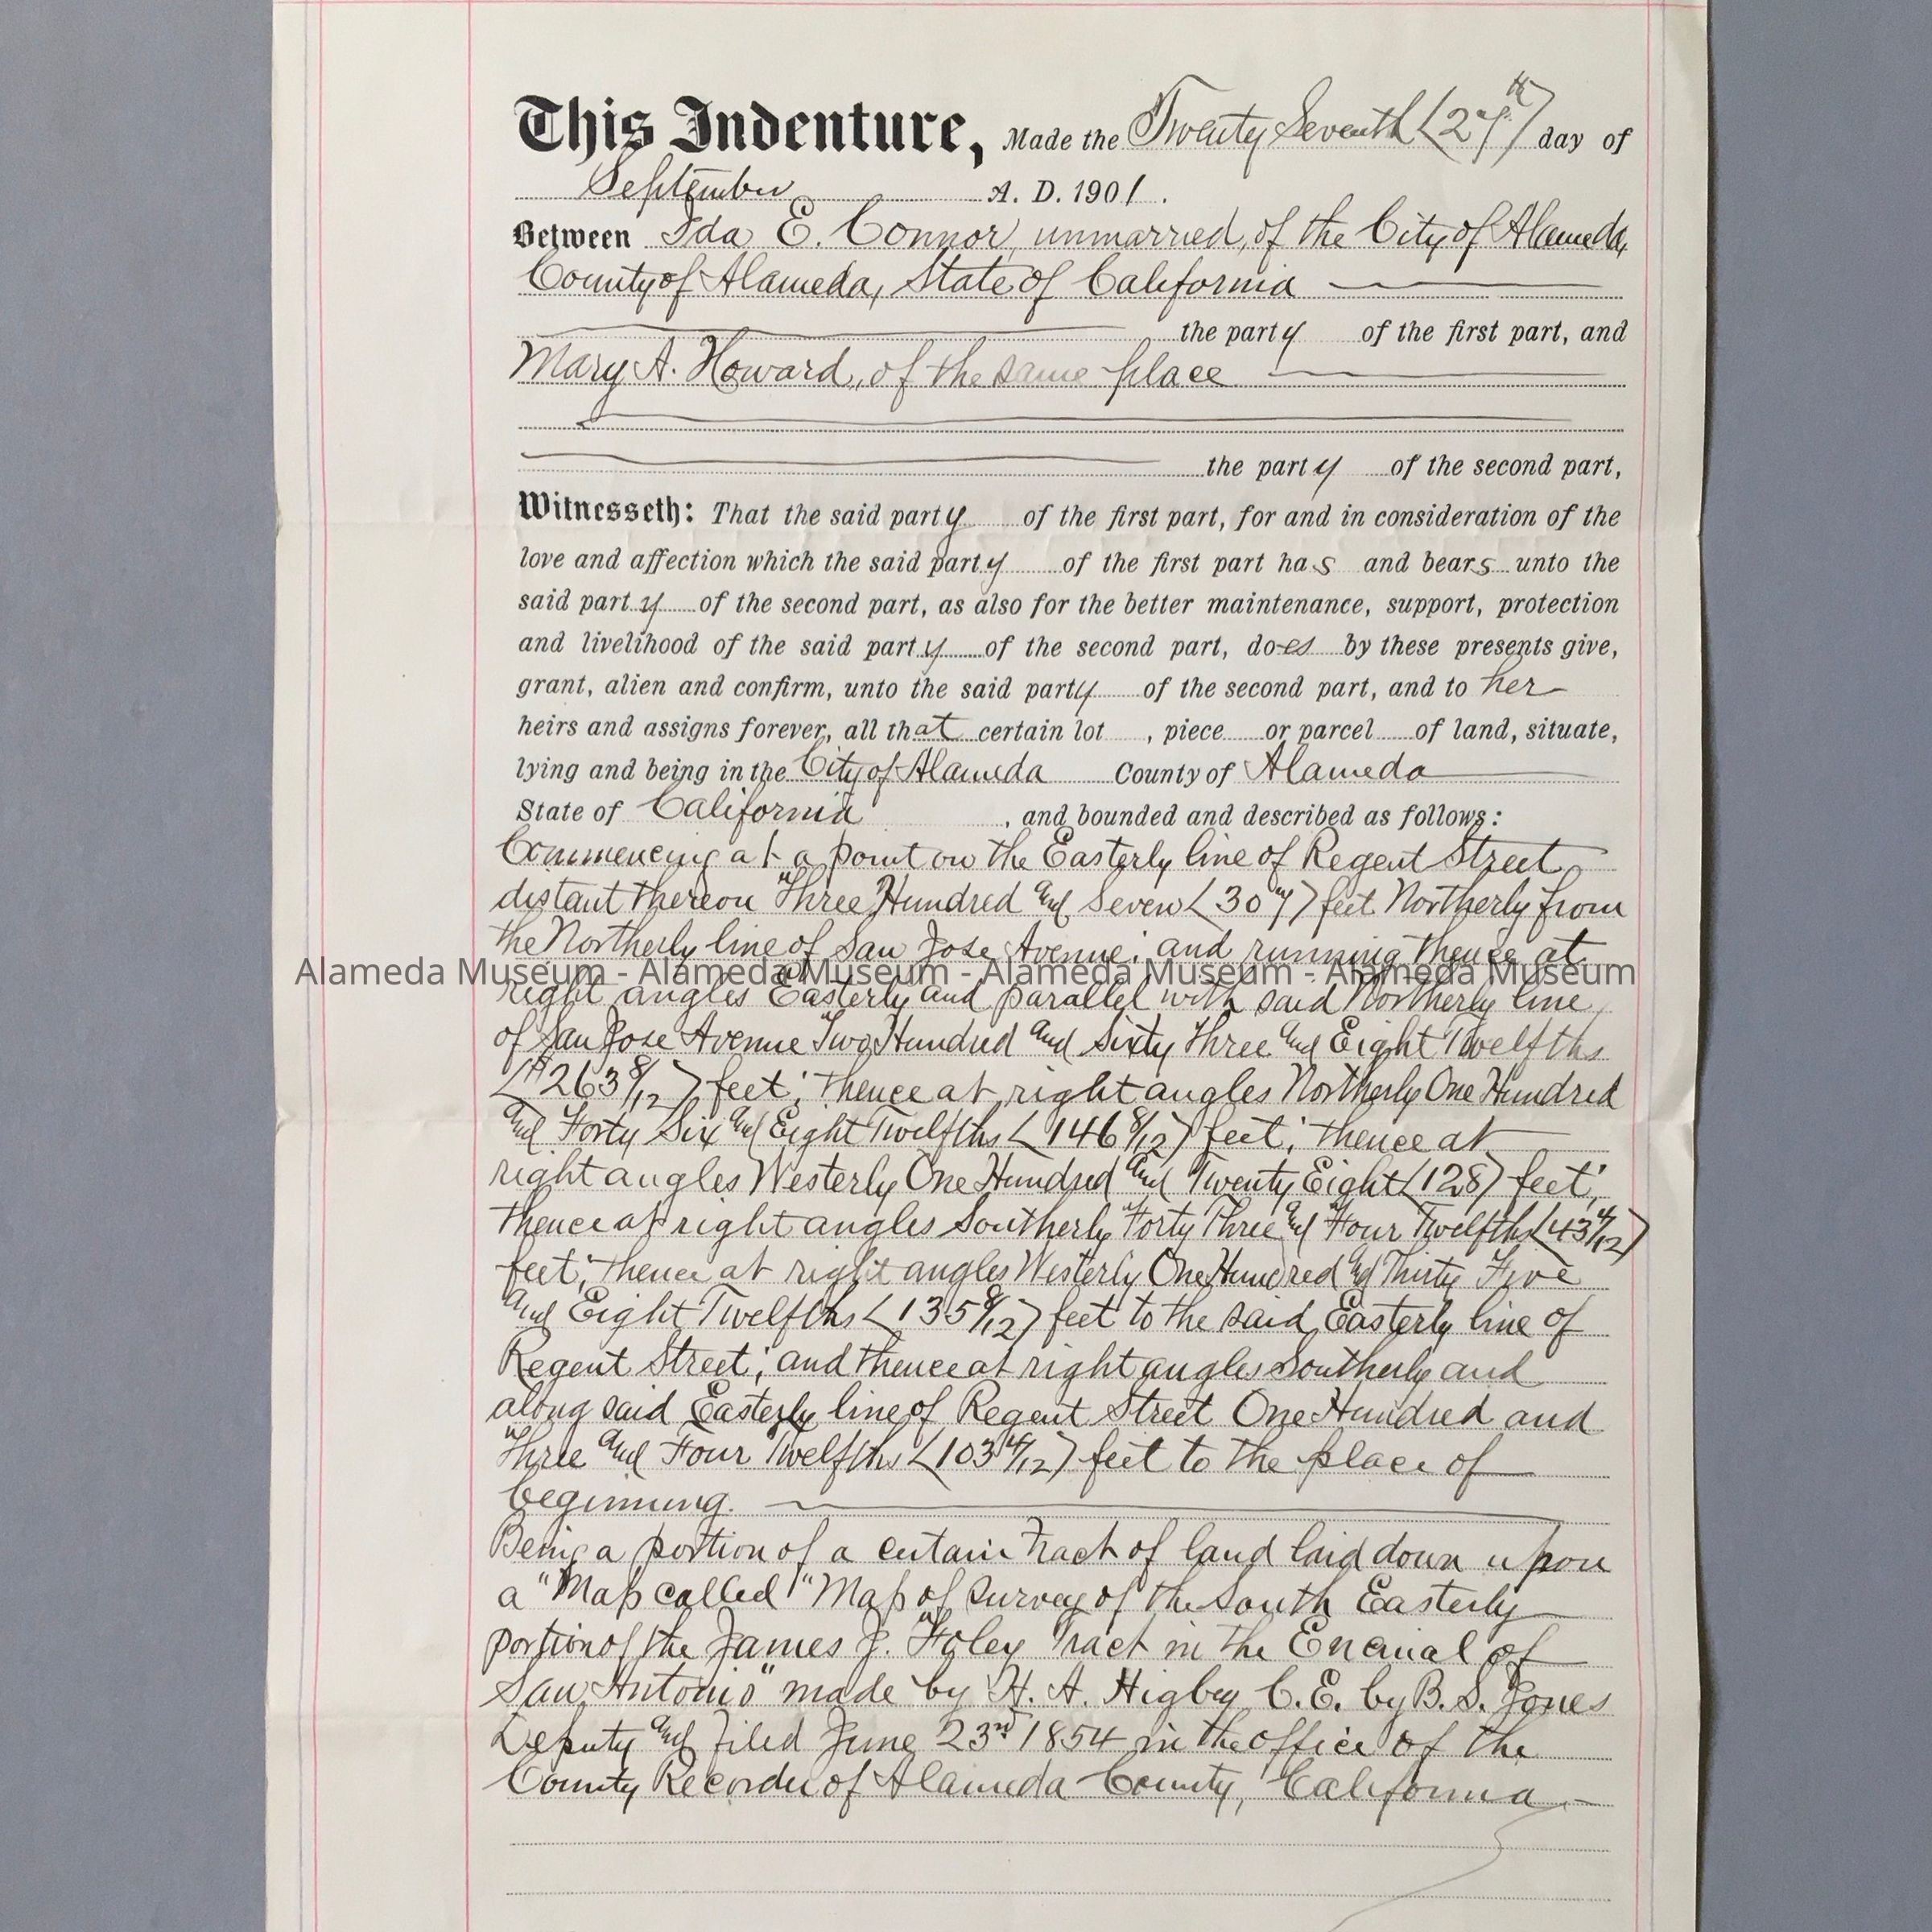 This Indenture, Made the Twenty Seventh (27th) day of
September A. D. 1901.
Between Ida E. Connor, unmarried, of the City of Alameda,
County of Alameda, State of California
the party of the first part, and
Mary A. Howard, of the same place
the party of the second part,
Witnesseth: That the said party of the first part, for and in consideration of the
love and affection which the said party of the first part has and bears unto the
said party of the second part, as also for the better maintenance, support, protection
and livelihood of the said party of the second part, does by these presents give,
grant, alien and confirm, unto the said party of the second part, and to her
heirs and assigns forever, all that certain lot , piece or parcel of land, situate,
lying and being in the City of Alameda County of Alameda
State of California , and bounded and described as follows:
Commencing at a point on the Easterly line of Regent Street
distant thereon Three Hundred and Seven (307) feet Northerly from
the Northerly line of San Jose Avenue; and running thence at
Alameda Museum - Alameda Museum - Alameda Museum - Alameda Museum
right angles Easterly and parallel with said Northerly line
of San Jose Avenue Two Hundred and Sixty Three and Eight Twelfths
(263 8/12) feet; thence at right angles Northerly One Hundred
and Forty Six and Eight Twelfths (146 8/12) feet; thence at
right angles Westerly One Hundred and Twenty Eight (128) feet;
thence at right angles Southerly Forty Three and Four Twelfths (43 4/12)
feet; thence at right angles Westerly One Hundred and Thirty Five
and Eight Twelfths (135 8/12) feet to the said Easterly line of
Regent Street; and thence at right angles Southerly and
along said Easterly line of Regent Street One Hundred and
Three and Four Twelfths (103 4/12) feet to the place of
beginning.
Being a portion of a certain Tract of land laid down upon
a "Map called "Map of Survey of the South Easterly
portion of the James J. Foley Tract in the Encinal of
San Antonio" made by H. A. Higley C. E. by B. S. Jones
Deputy and filed June 23rd 1854 in the office of the
County Recorder of Alameda County, California